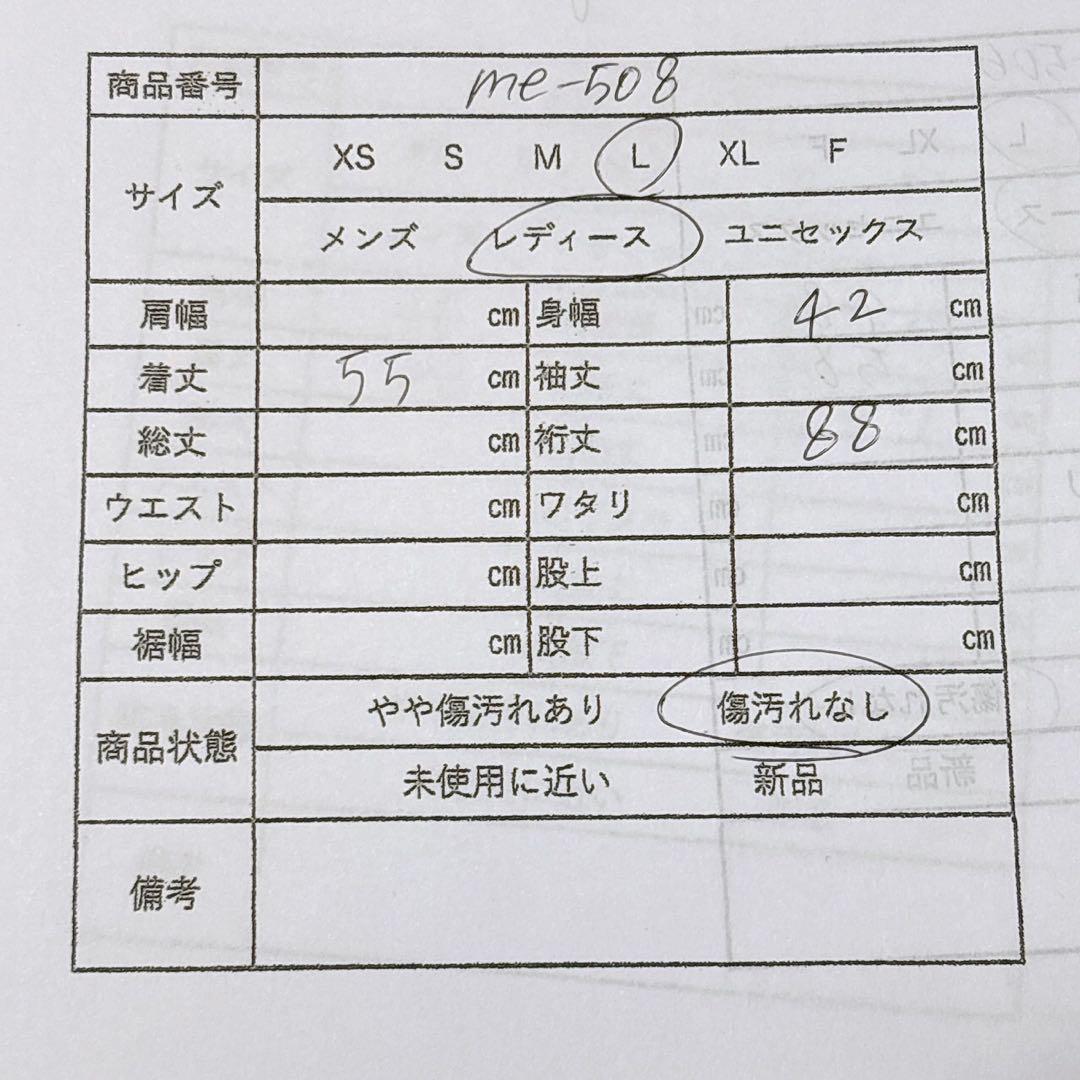 商品番号 me-508
サイズ XS S M L XL F
メンズ レディース ユニセックス
肩幅 cm 身幅 42 cm
着丈 55 cm 袖丈 cm
総丈 cm 裄丈 88 cm
ウエスト cm ワタリ cm
ヒップ cm 股上 cm
裾幅 cm 股下 cm
商品状態 やや傷汚れあり 傷汚れなし
未使用に近い 新品
備考